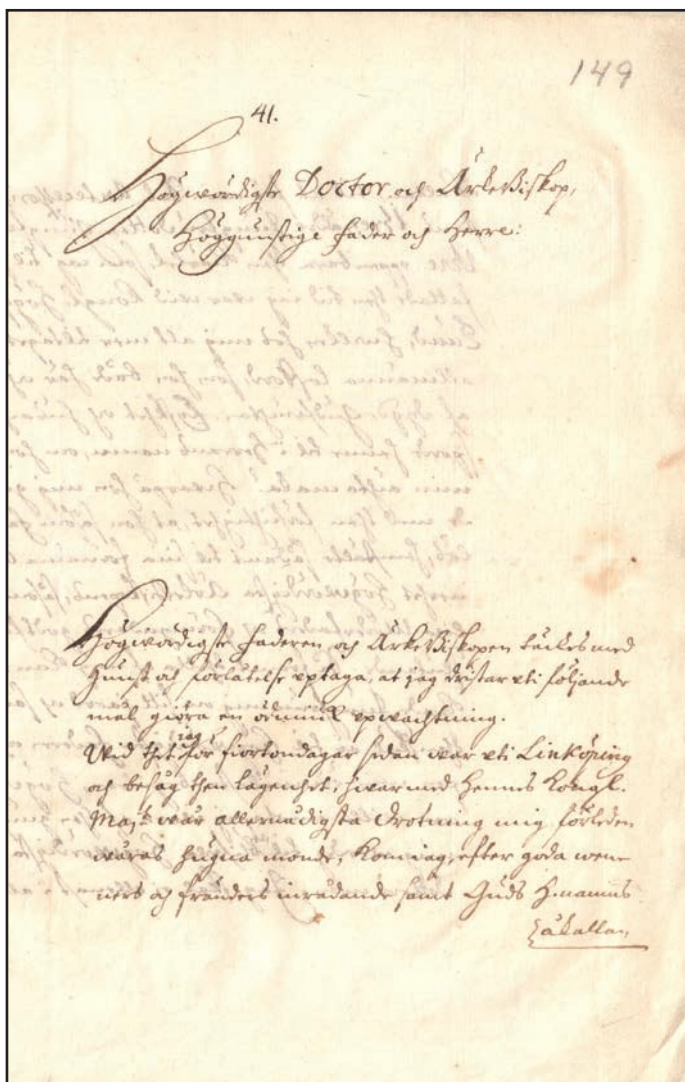 149
41.
Högwördigste Doctor och ÄrkeBiskop,
Höggunstige Fader och Herre:
Högwördigste Faderen och ÄrkeBiskopen täckes med
gunst och förlåtelse uptaga, at jag dristar uti följande
mål giöra en ödmiuk upwachtning.
Wid thet jag för fiortondagar sedan war uti Linköping
och besåg then lägenhet, hwarmed Hennes Kongl.
Maj:t wår allernådigste Drotning mig förleden
wåras hugna monde, kom jag, efter goda wen-
ners och fränders inrådande samt Guds H. namns
åkallan,